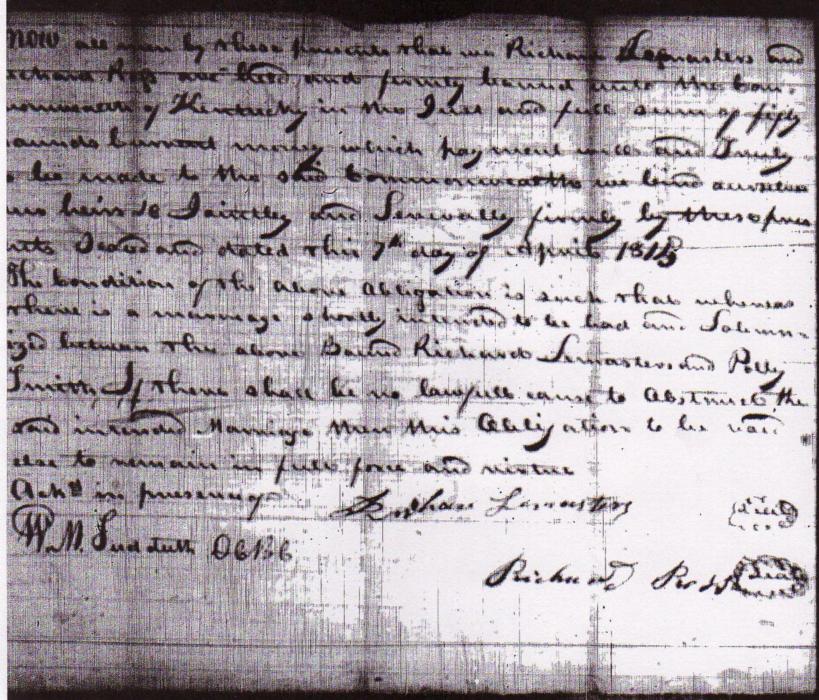 now all men by these presents that we Richard Lemasters and
Richard Ross are held and firmly bound unto the Com-
monwealth of Kentucky in the Just and full sum of fifty
pounds Current money which payment well and Truly
to be made to the said Commonwealth we bind ourselves
our heirs &c Jointley and Severally firmly by these pres
ents Sealed and dated this 7th day of April 1815
The Condition of the above Obligation is such that whereas
there is a marriage shortly intended to be had and Solemn-
ized between the above Bound Richard Lemasters and Polly
Smith If there shall be no lawfull cause to Obstruct the
said intended Marriage then this Obligation to be void
else to remain in full force and virtue
Ackd in presence of Richard Lemasters Seal
W. M. Sudduth
Richard Ross Seal